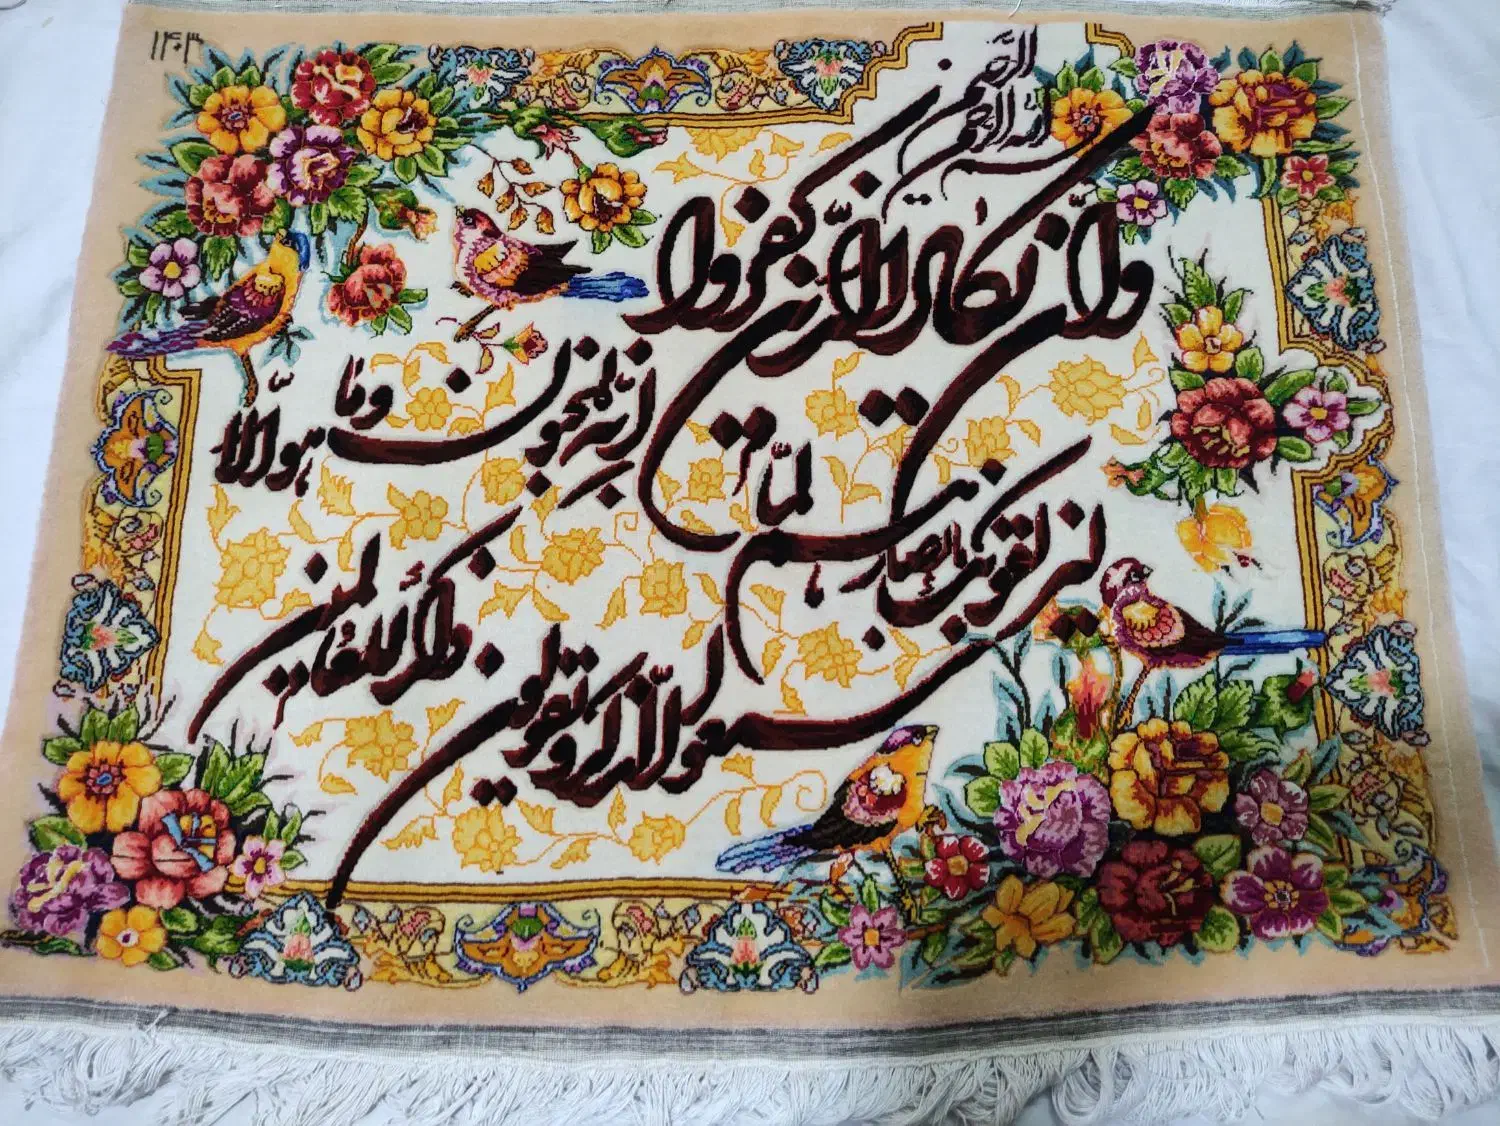 ۱۴۰۳
بسم الله الرحمن الرحیم
وان یکاد الذین کفروا
لیزلقونک بابصارهم لما
سمعوا الذکر و یقولون
انه لمجنون وما هو الا
ذکر للعالمین